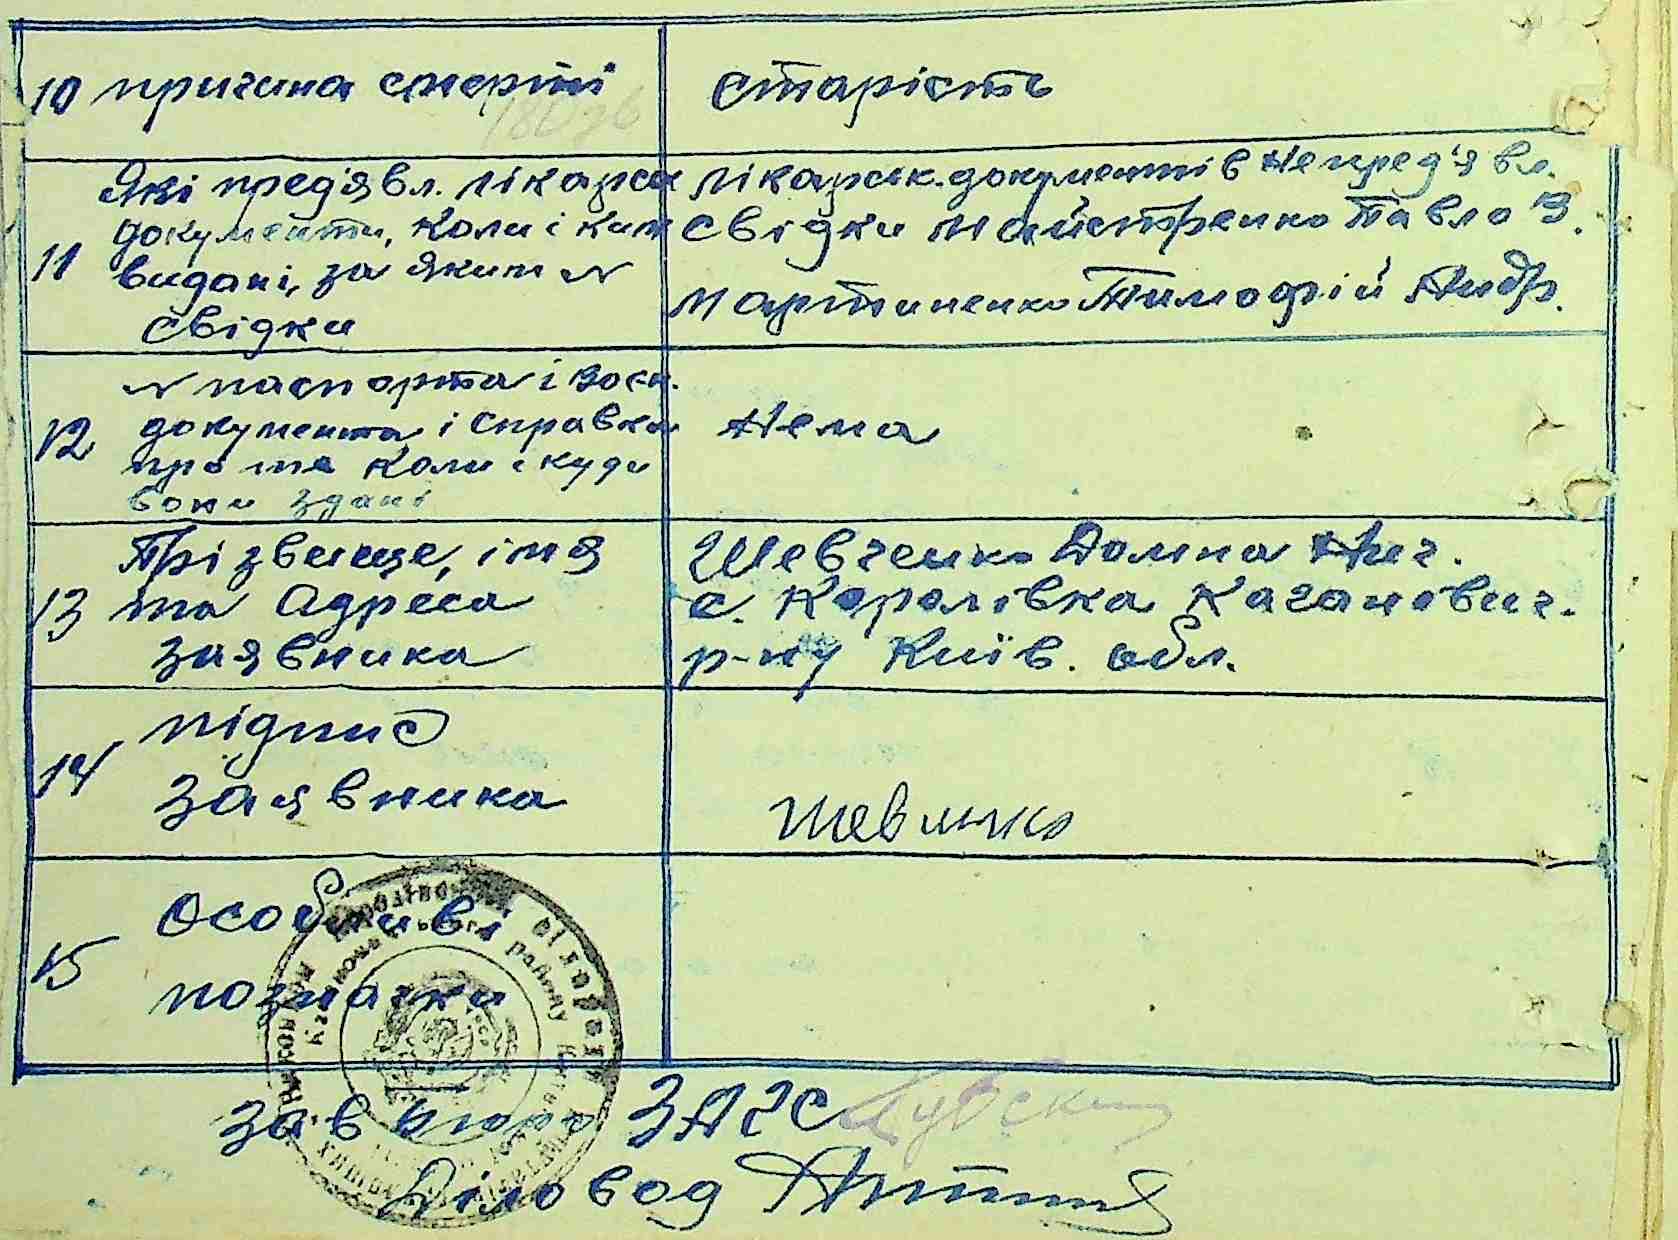 10 причина смерті
старість
Які пред'явл. лікарськ
документи, коли і ким
11 видані, за яким №
свідки
лікарськ. документів не пред'явл.
свідки Майстренко Павло З.
Мартиненко Тимофій Андр.
№ паспорта і воєн.
12 документа і справка
про те коли і куди
вони здані
Нема
Прізвище, імя
13 та Адреса
заявника
Шевченко Домна
с. Королівка Каганович.
р-ну Київ. обл.
підпис
14 заявника
Шевченко
Особливі
15 позначки
Зав бюро ЗАГС
Діловод